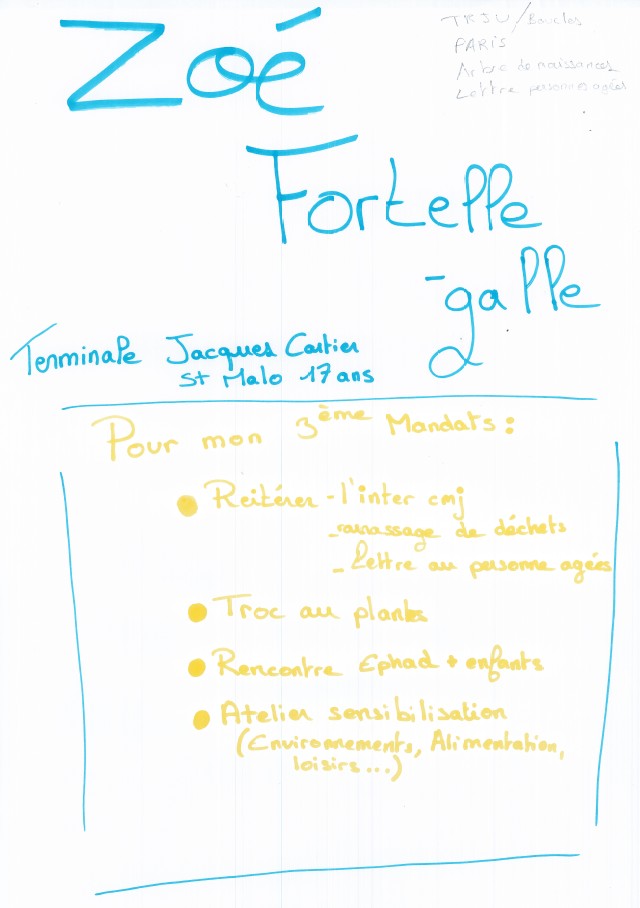 Zoé
TEJU/Boucles
PARIS
Arbre de naissances
Lettre personnes agées
Fortelle
-galle
Terminale Jacques Cartier
St Malo 17 ans
Pour mon 3ème Mandats :
Reitérer - l'inter cmj
- ramassage de déchets
- lettre au personne agées
Troc au plants
Rencontre Ephad + enfants
Atelier sensibilisation
(Environnements, Alimentation,
loisirs...)